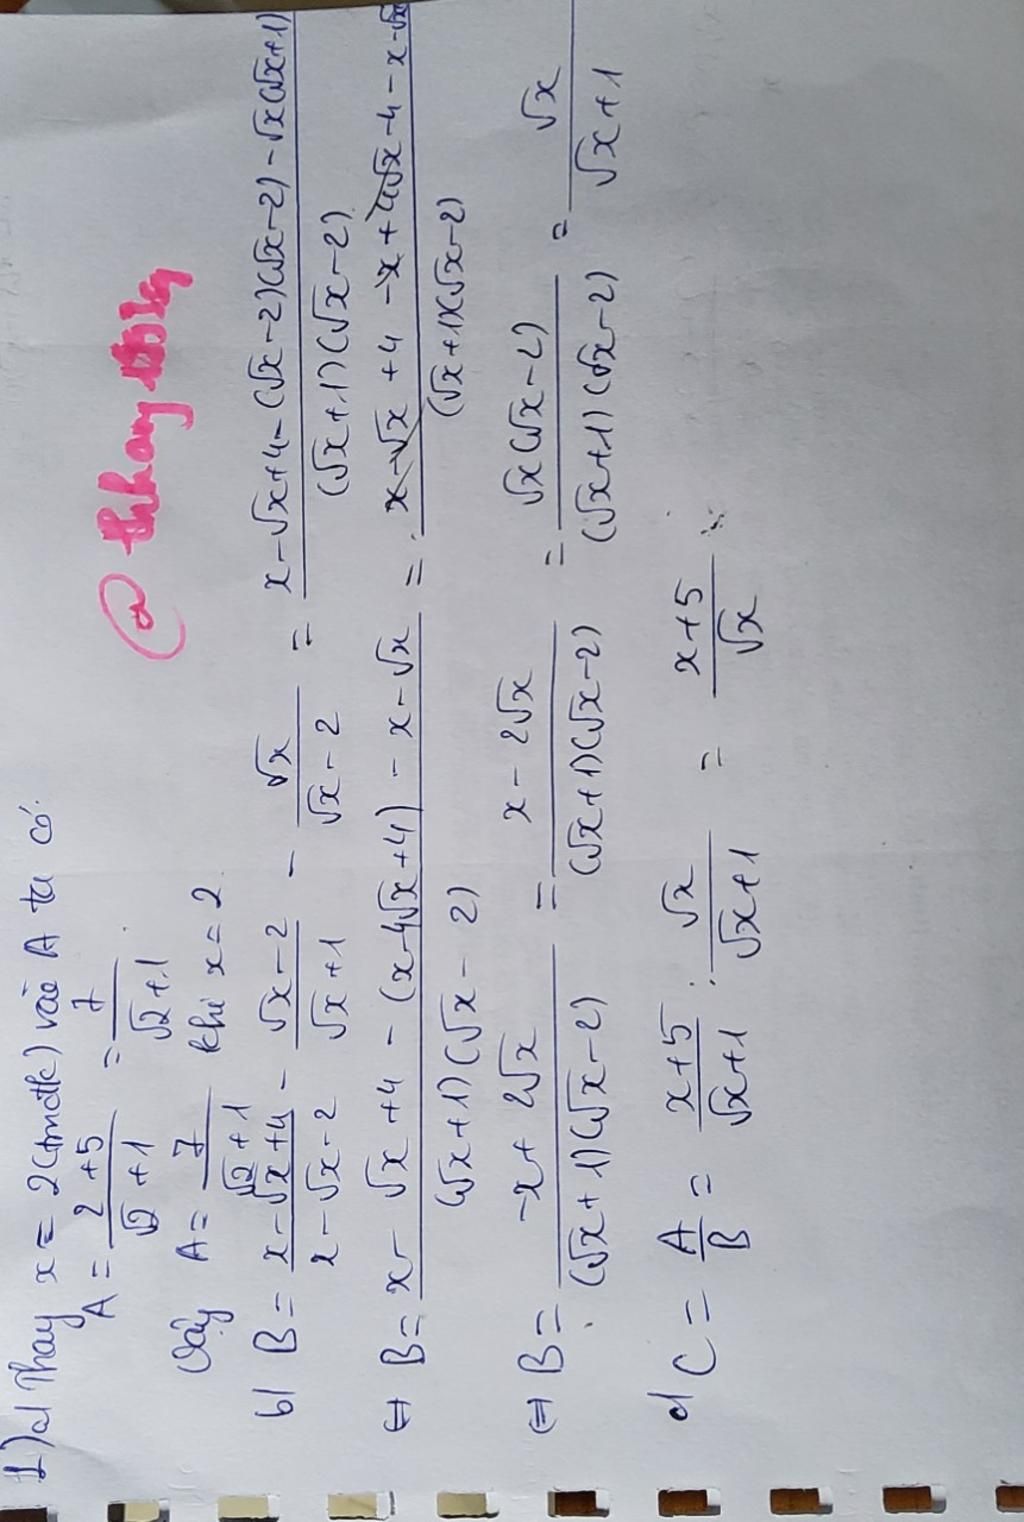 1) a) Thay x = 2 (tmđk) vào A ta có:
A = (2+5)/(√2+1) = 7/(√2+1)
@ thhay
Vậy A = 7/(√2+1) khi x = 2
b) B = (x-√x+4)/(x-√x-2) - (√x-2)/(√x+1) - √x/(√x-2) = (x-√x+4-(√x-2)(√x-2)-√x(√x+1))/((√x+1)(√x-2))
⇔ B = (x-√x+4-(x-4√x+4)-x-√x)/((√x+1)(√x-2)) = (x-√x+4-x+4√x-4-x-√x)/((√x+1)(√x-2))
⇔ B = (-x+2√x)/((√x+1)(√x-2)) = (x-2√x)/((√x+1)(√x-2)) = (√x(√x-2))/((√x+1)(√x-2)) = √x/(√x+1)
c) C = A/B = (x+5)/(√x+1) : √x/(√x+1) = (x+5)/√x